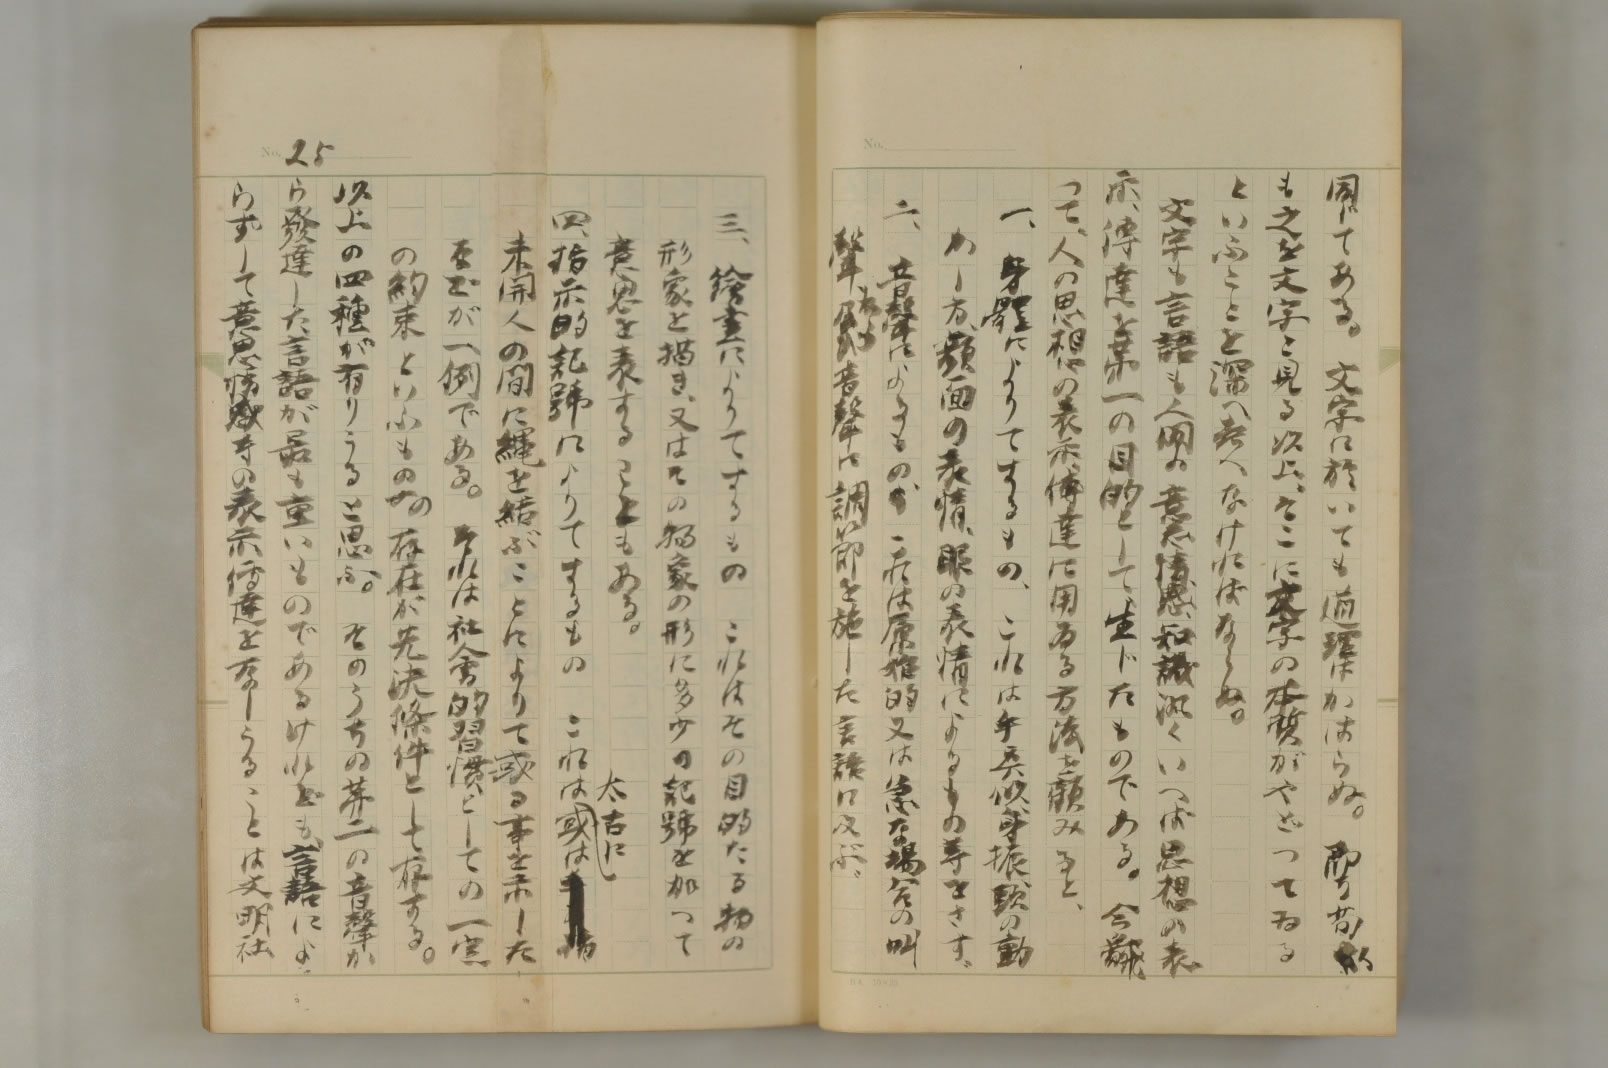 No.
同じである。文字に於いても道理はかはらぬ。即ち苟
も之を文字と見る以上、そこに文字の本質がやどつてゐる
といふことを深く考へなければならぬ。
文字も言語も人間の意志、情感、知識、汎くいへば思想の表
示、傳達を第一の目的として生じたものである。今飜
つて、人の思想の表示、傳達に用ゐる方法を顧みると、
一、身體によりてするもの、これは手眞似、身振、頭の動
かし方、顔面の表情、眼の表情によるもの等をさす、
二、音聲によるもの これは原始的又は急な場合の叫
聲から 音聲に調節を施した言語に及ぶ、
No. 25
三、繪畫によりてするもの これはその目的たる物の
形象を描き、又はその物象の形に多少の記號を加つて
意思を表することもある。
四、指示的記號によりてするもの これは太古に或は
未開人の間に繩を結ぶことによりて或る事を示した
などが一例である。それは社會的習慣としての一定
の約束といふものの存在が先決條件として存する。
以上の四種が有りうると思ふ。そのうちの第二の音聲か
ら發達した言語が最も重いものであるけれども、言語によ
らずして意思情感等の表示傳達を爲しうることは文明社